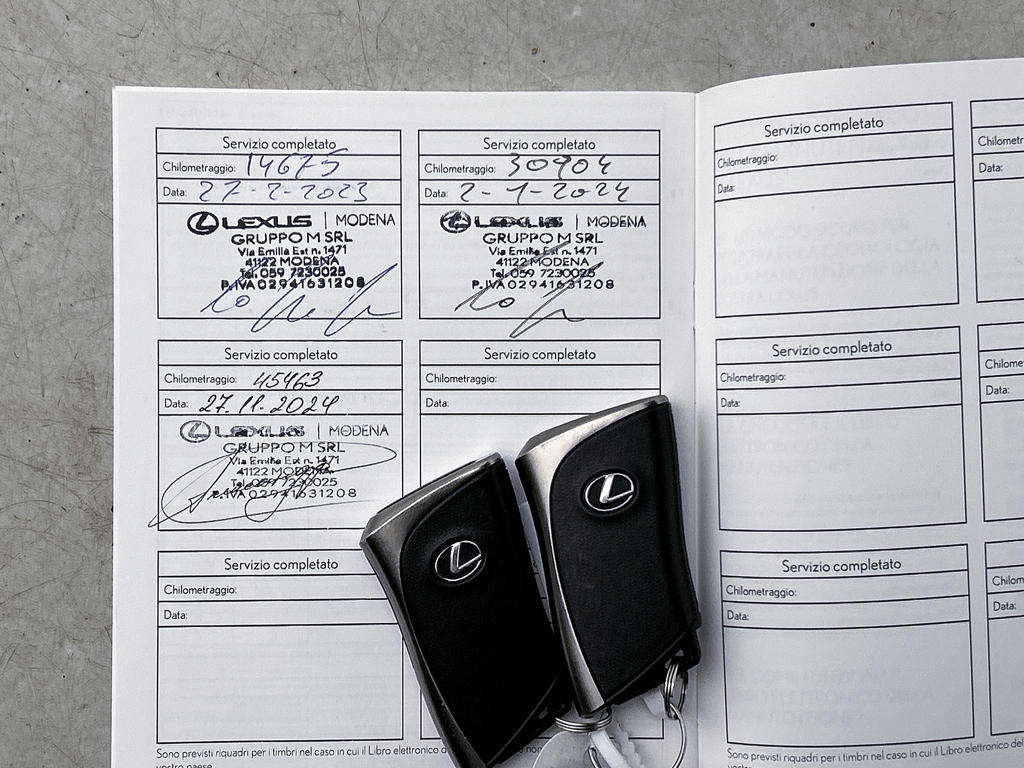 Servizio completato
Chilometraggio: 14675
Data: 27-2-2023
LEXUS | MODENA
GRUPPO M SRL
Via Emilia Est n. 1471
41122 MODENA
Tel. 059 7230025
P.IVA 02941631208
Servizio completato
Chilometraggio: 30904
Data: 2-1-2024
LEXUS | MODENA
GRUPPO M SRL
Via Emilia Est n. 1471
41122 MODENA
Tel. 059 7230025
P.IVA 02941631208
Servizio completato
Chilometraggio: 45463
Data: 27.11.2024
LEXUS | MODENA
GRUPPO M SRL
Via Emilia Est n. 1471
41122 MODENA
Tel. 059 7230025
P.IVA 02941631208
Servizio completato
Chilometraggio:
Data:
Servizio completato
Chilometraggio:
Data:
Sono previsti riquadri per i timbri nel caso in cui il Libro elettronico
vostro paese
Servizio completato
Chilometraggio:
Data:
Servizio completato
Chilometraggio:
Data:
Servizio completato
Chilometraggio:
Data:
Sono previsti riquadri per i timbri nel caso in cui il Libro elettronico del
Data:
Data:
Data: